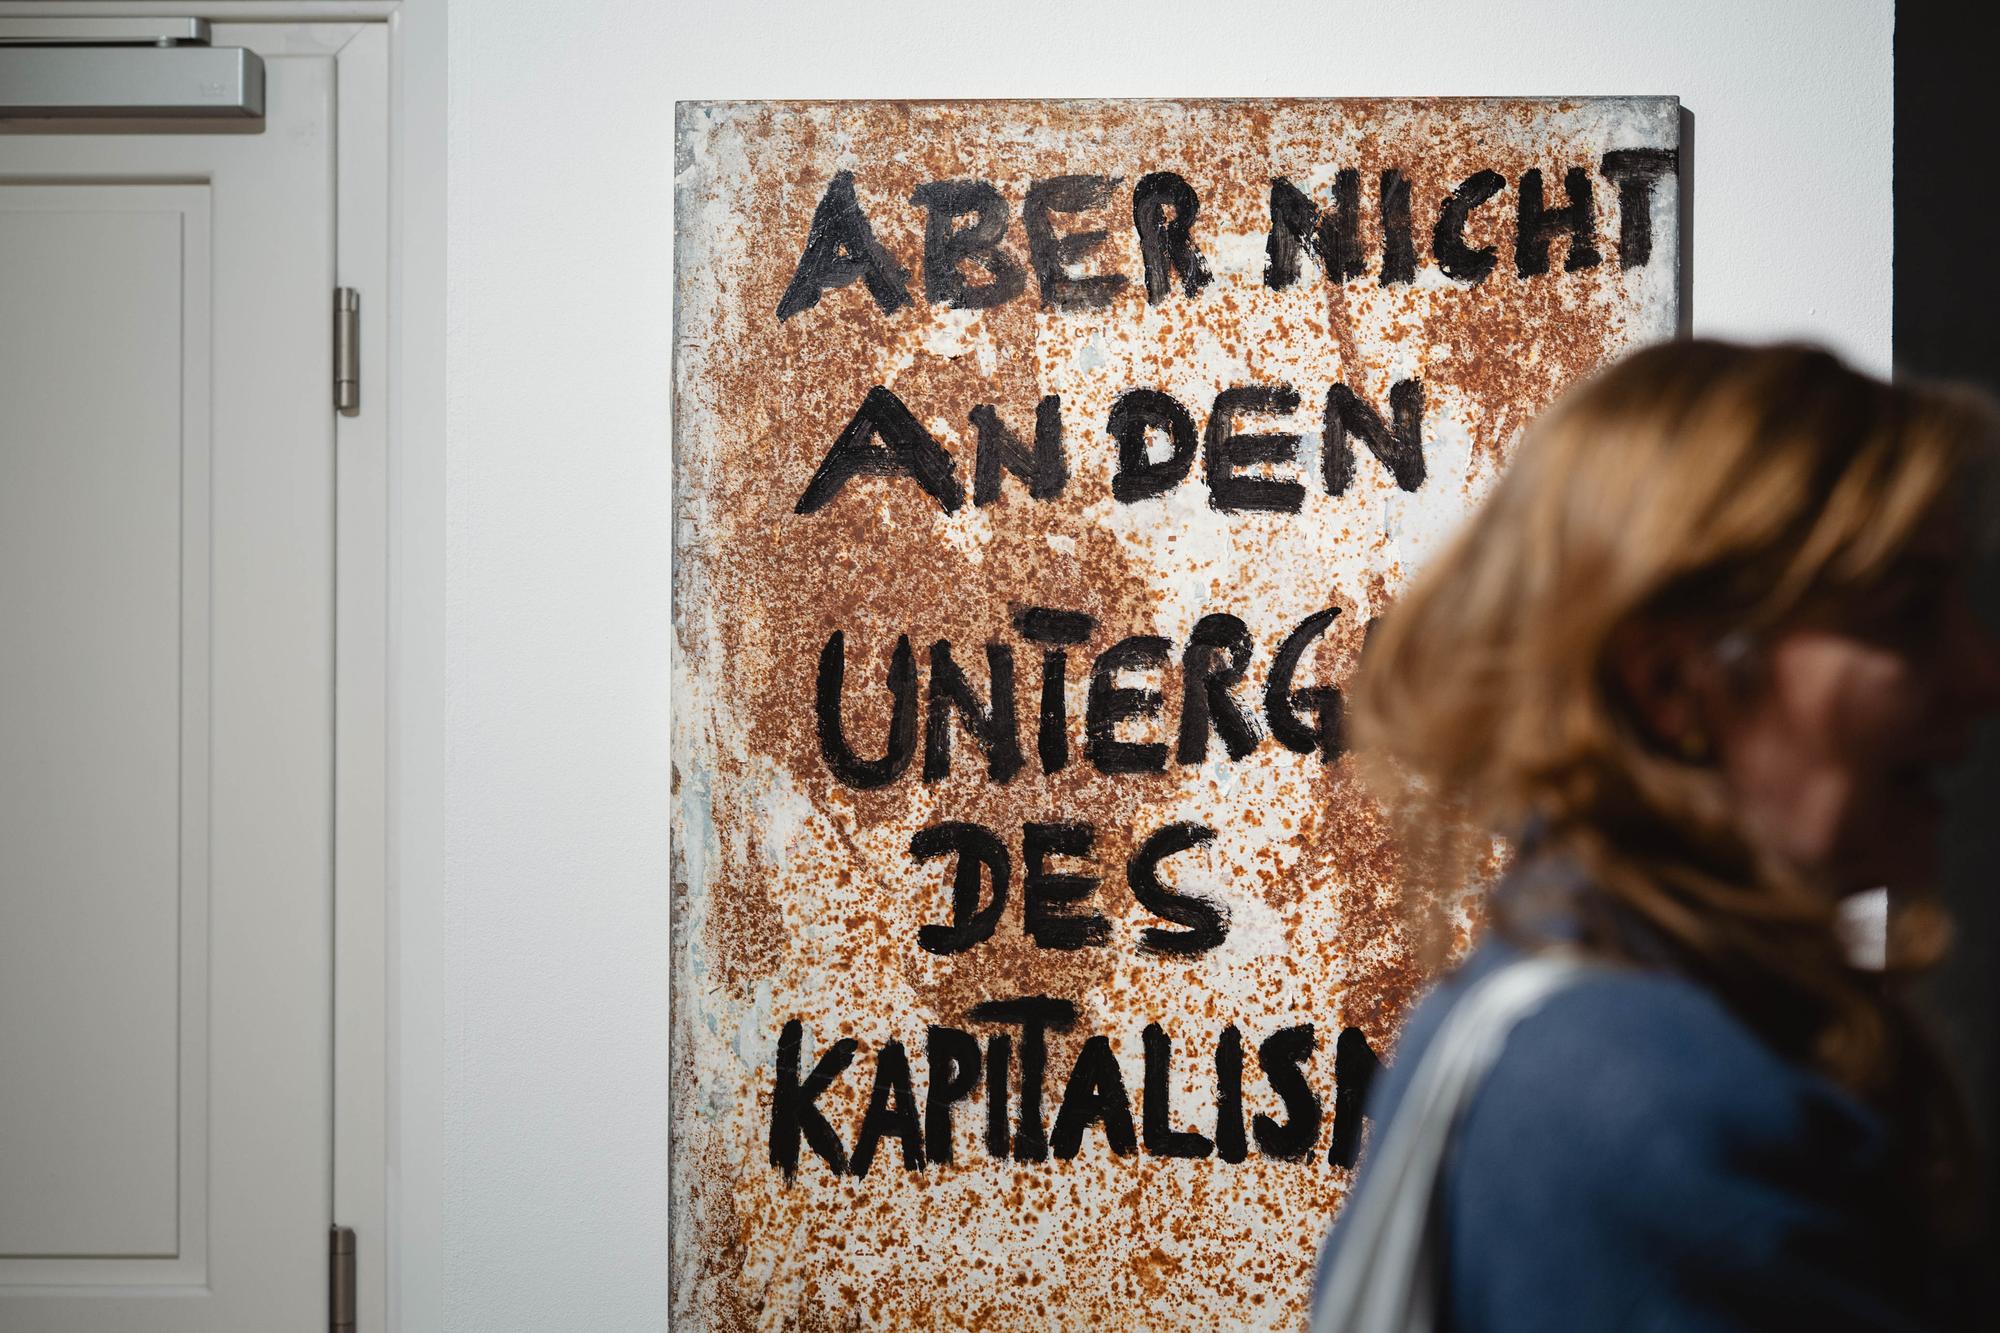 ABER NICHT
AN DEN
UNTERG
DES
KAPITALISM